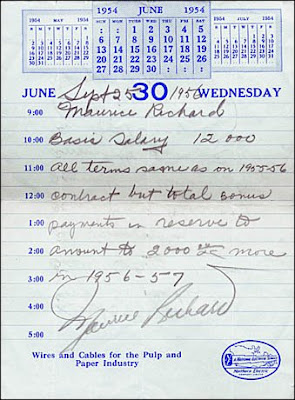 1954 MAY 1954
1954 JUNE 1954
1954 JULY 1954
1 2 3 4 5
6 7 8 9 10 11 12
13 14 15 16 17 18 19
20 21 22 23 24 25 26
27 28 29 30
JUNE 30 WEDNESDAY
Sept 25 1956
9:00 Maurice Richard
10:00 Basic Salary 12 000
11:00 All terms same as on 1955-56
12:00 contract but total bonus
1:00 payments in reserve to
2:00 amount to 2000 more
3:00 in 1956-57
4:00 Maurice Richard
5:00
Wires and Cables for the Pulp and
Paper Industry
Northern Electric